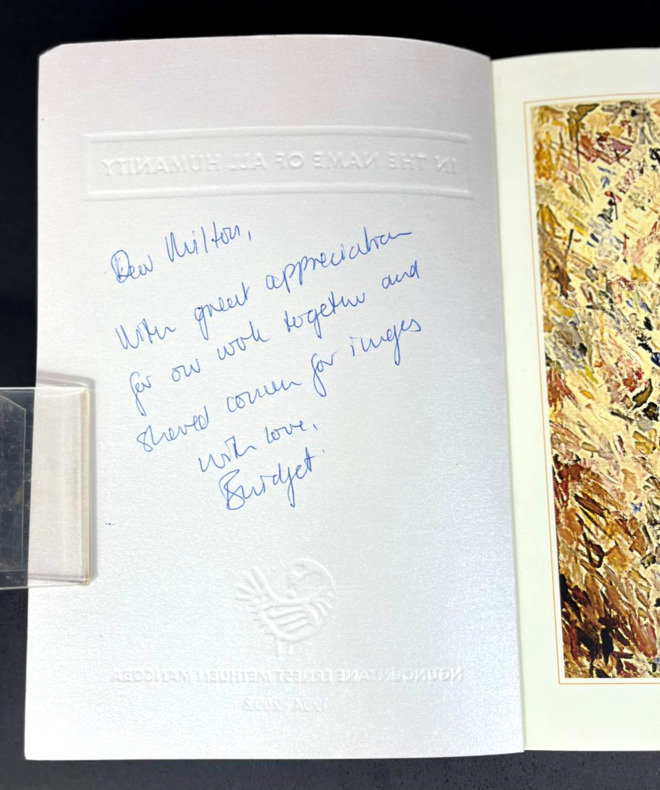 IN THE NAME OF ALL HUMANITY
Dear Milton,
With great appreciation
for our work together and
shared concern for images
with love,
Bridget
ERNEST METHUEN MANCOBA
1904-2002